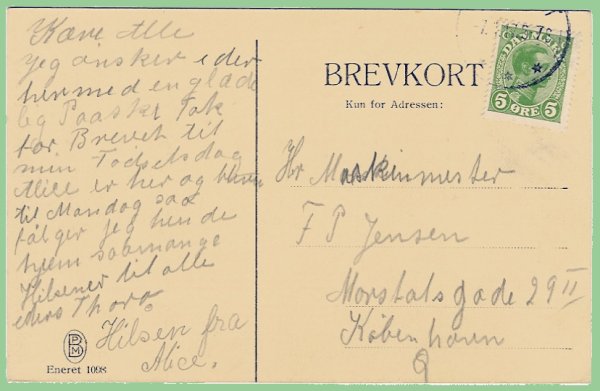 Kære Alle
jeg ønsker eder
hermed en glade
lig Paaske Tak
for Brevet til
min Fødselsdag
Alice er her og bliver
til Mandag saa
følger jeg hende
hjem saamange
Hilsener til alle
eders Thora
Hilsen fra
Alice.
Eneret 1098
BREVKORT
Kun for Adressen:
DANMARK
5 ØRE 5
Hr Maskinmester
F P Jensen
Morstalsgade 29 II
København
Ø